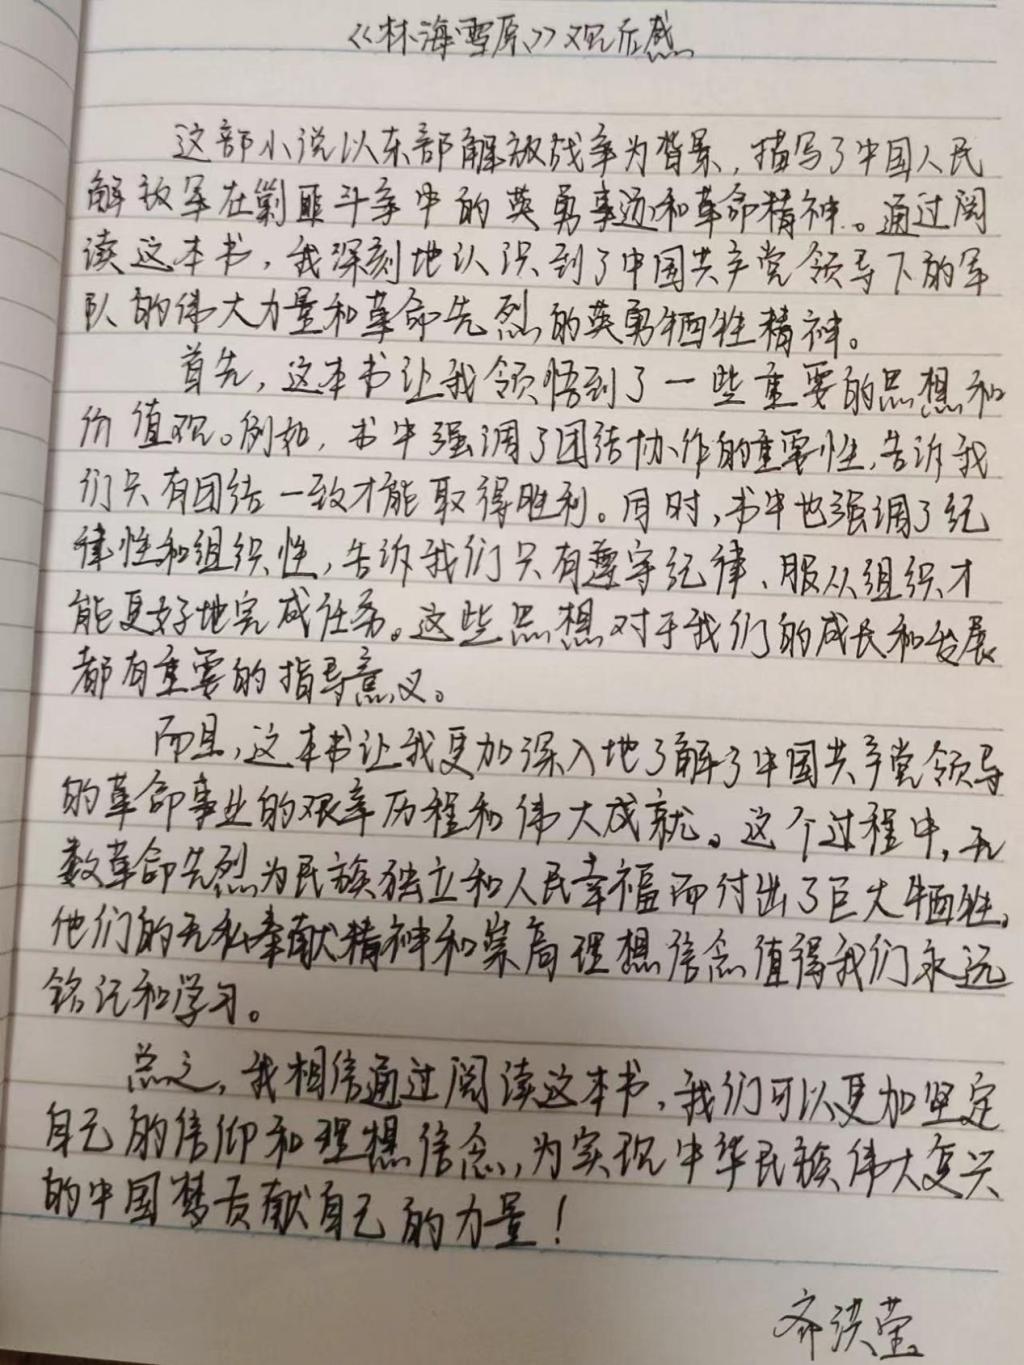 《林海雪原》观后感
这部小说以东部解放战争为背景，描写了中国人民
解放军在剿匪斗争中的英勇事迹和革命精神。通过阅
读这本书，我深刻地认识到了中国共产党领导下的军
队的伟大力量和革命先烈的英勇牺牲精神。
首先，这本书让我领悟到了一些重要的思想和
价值观。例如，书中强调了团结协作的重要性，告诉我
们只有团结一致才能取得胜利。同时，书中也强调了纪
律性和组织性，告诉我们只有遵守纪律、服从组织才
能更好地完成任务。这些思想对于我们的成长和发展
都有重要的指导意义。
而且，这本书让我更加深入地了解了中国共产党领导
的革命事业的艰辛历程和伟大成就。这个过程中，无
数革命先烈为民族独立和人民幸福而付出了巨大牺牲。
他们的无私奉献精神和崇高理想信念值得我们永远
铭记和学习。
总之，我相信通过阅读这本书，我们可以更加坚定
自己的信仰和理想信念，为实现中华民族伟大复兴
的中国梦贡献自己的力量！
齐洪莹